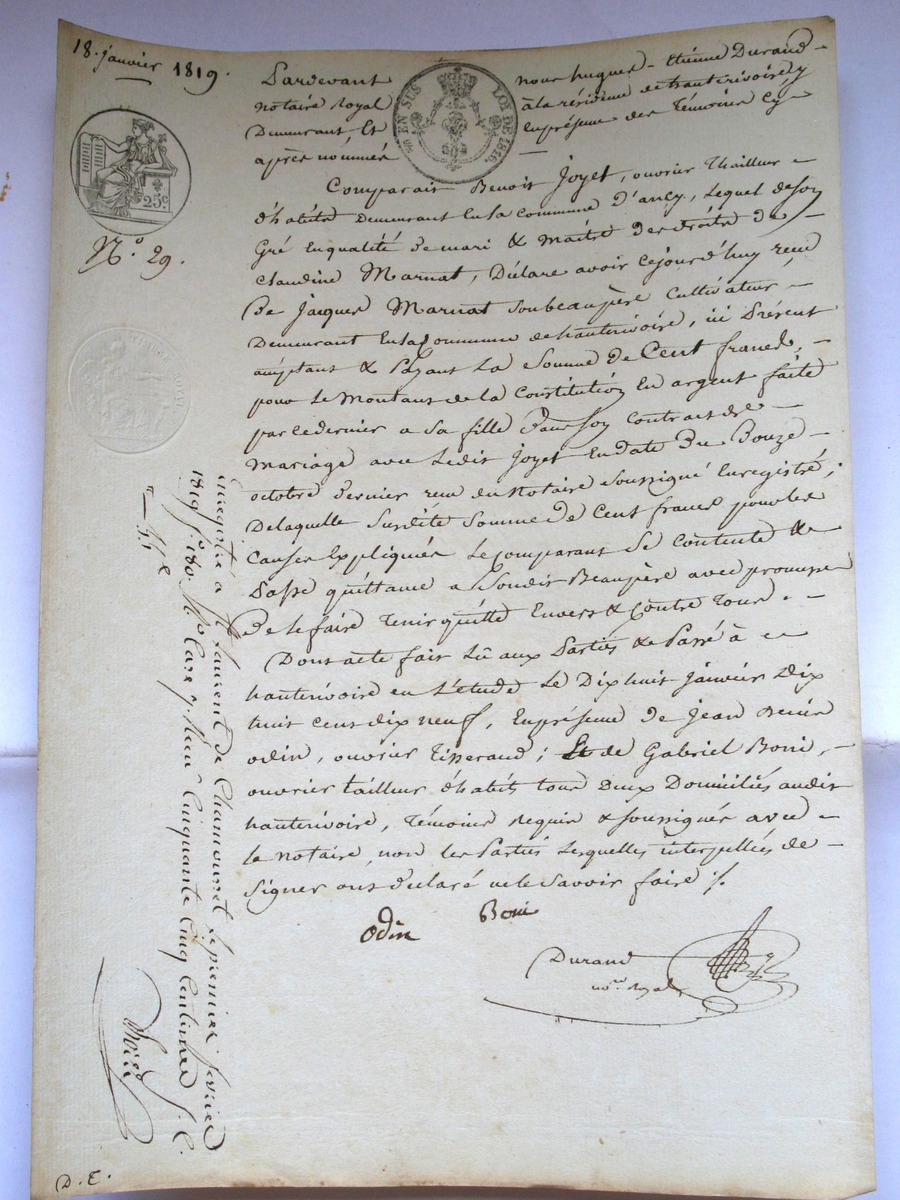 18. janvier 1819.
Pardevant nous hugues - Etiénne Durand -
notaire royal à la résidence de hauterivoire, y
Demeurant Et en présence des témoins cy -
après nommés -
EN SUS LOI DE 1816.
25c.
N.o 29.
Comparait Benoit Joyet, ouvrier thailleur -
d'habits demeurant En la Commune d'ancy, Lequel de son
Gré En qualité de mari & maitre des droits de -
Claudine Marnat, Déclare avoir cejourd'huy reçu
De Jacques Marnat son beaupère Cultivateur -
Demeurant En la Commune de hauterivoire, ici présent
acceptant & Payant La Somme de Cent francs, -
pour le Montant de la Constitution En argent faite
par ce dernier a Sa fille Dans son Contrat de -
mariage avec Ledit Joyet En date Du Douze -
octobre Dernier reçu du Notaire Soussigné Enregistré;
De laquelle Susdite Somme de Cent francs pour les
Causes Expliquées Le comparant Se Contente &
Passe quittance a Sondit Beaupère avec promesse
De le faire Tenir quitte Envers & Contre Tous. -
Dont acte fait Lû aux Parties & Passé à
hauterivoire en L'étude Le Dix huit Janvier Dix
huit cent dix neuf, En présence de Jean Denis
odin, ouvrier Tisserand; Et de Gabriel Boni, -
ouvrier tailleur d'habits tous Deux Domiciliés audit
hauterivoire, Témoins requis & Soussignés avec -
le notaire, non les Parties Lesquelles interpellées de -
Signer ont déclaré ne le Savoir faire ./.
Odin Boni
Durand
no.re royal
Enregistré à St. Laurent de Chamousset le premier février
1819 f.o 180. Reçu Cinquante Cinq Centimes
D. E.